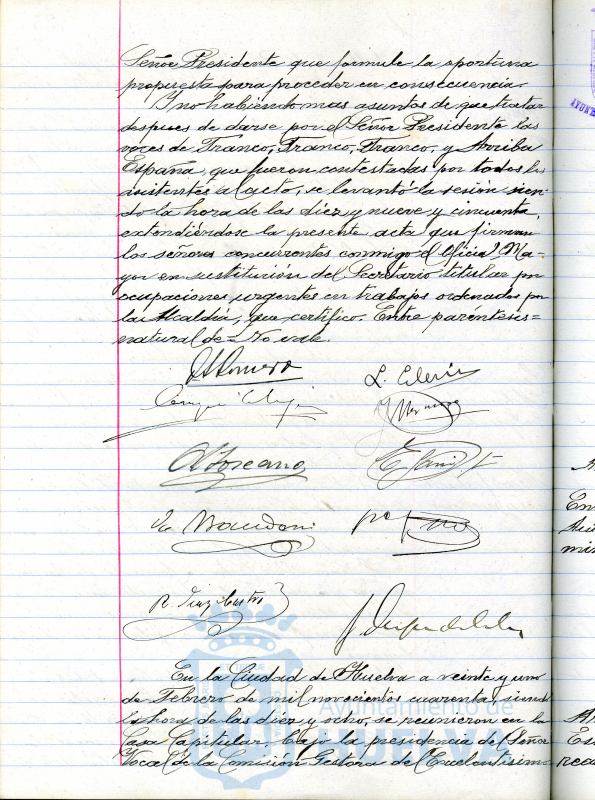 Señor Presidente que formule la oportuna
propuesta para proceder en consecuencia.
Y no habiendo mas asuntos de que tratar
despues de darse por el Señor Presidente las
voces de Franco, Franco, Franco, y Arriba
España, que fueron contestadas por todos los
asistentes al acto, se levantó la sesión sien-
do la hora de las diez y nueve y cincuenta,
extendiéndose la presente acta que firman
los señores concurrentes conmigo el Oficial Ma-
yor en sustitución del Secretario titular por
ocupaciones urgentes en trabajos ordenados por
la Alcaldía, que certifico. Entre parentesis=
natural de= No vale.
Romero
R. Diaz Castro
En la Ciudad de Huelva a veinte y uno
de Febrero de mil novecientos cuarenta, siend
la hora de las diez y ocho, se reunieron en la
Casa Capitular, bajo la presidencia del Señor
Vocal de la Comisión Gestora del Excelentísimo
Ayuntamiento de
HUELVA